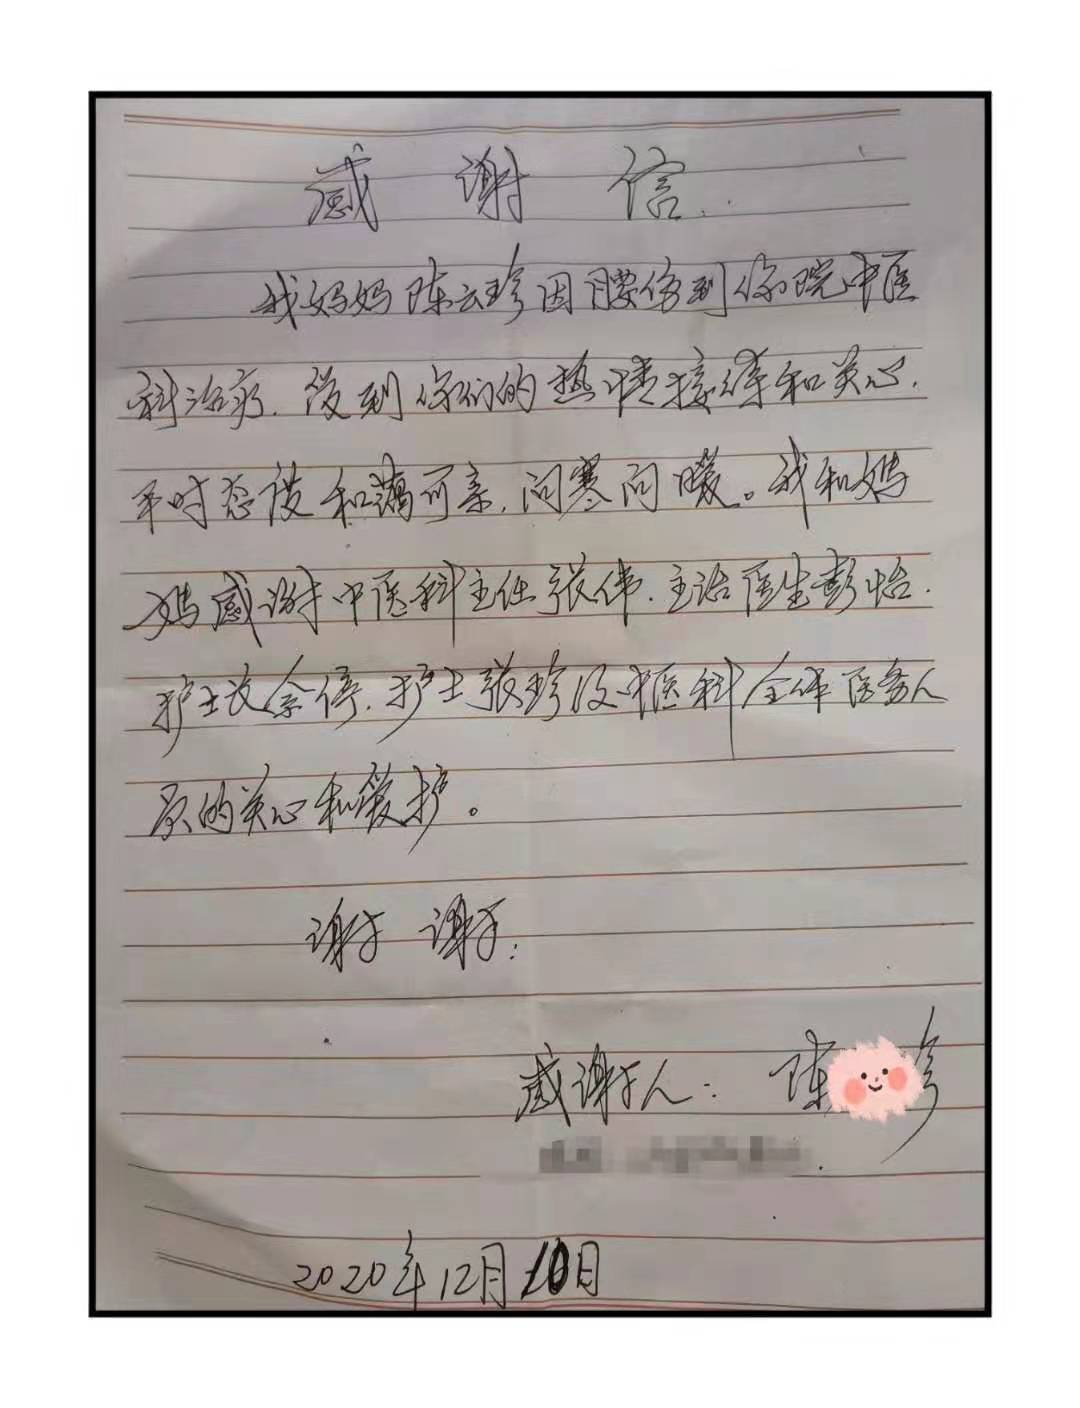 感谢信.
我妈妈陈云珍因腰伤到你院中医
科治疗.得到你们的热情接待和关心.
平时态度和蔼可亲.问寒问暖。我和妈
妈感谢中医科主任张伟.主治医生彭怡.
护士长余倩.护士张珍及中医科全体医务人
员的关心和爱护。
谢谢:
感谢人:陈
2020年12月10日